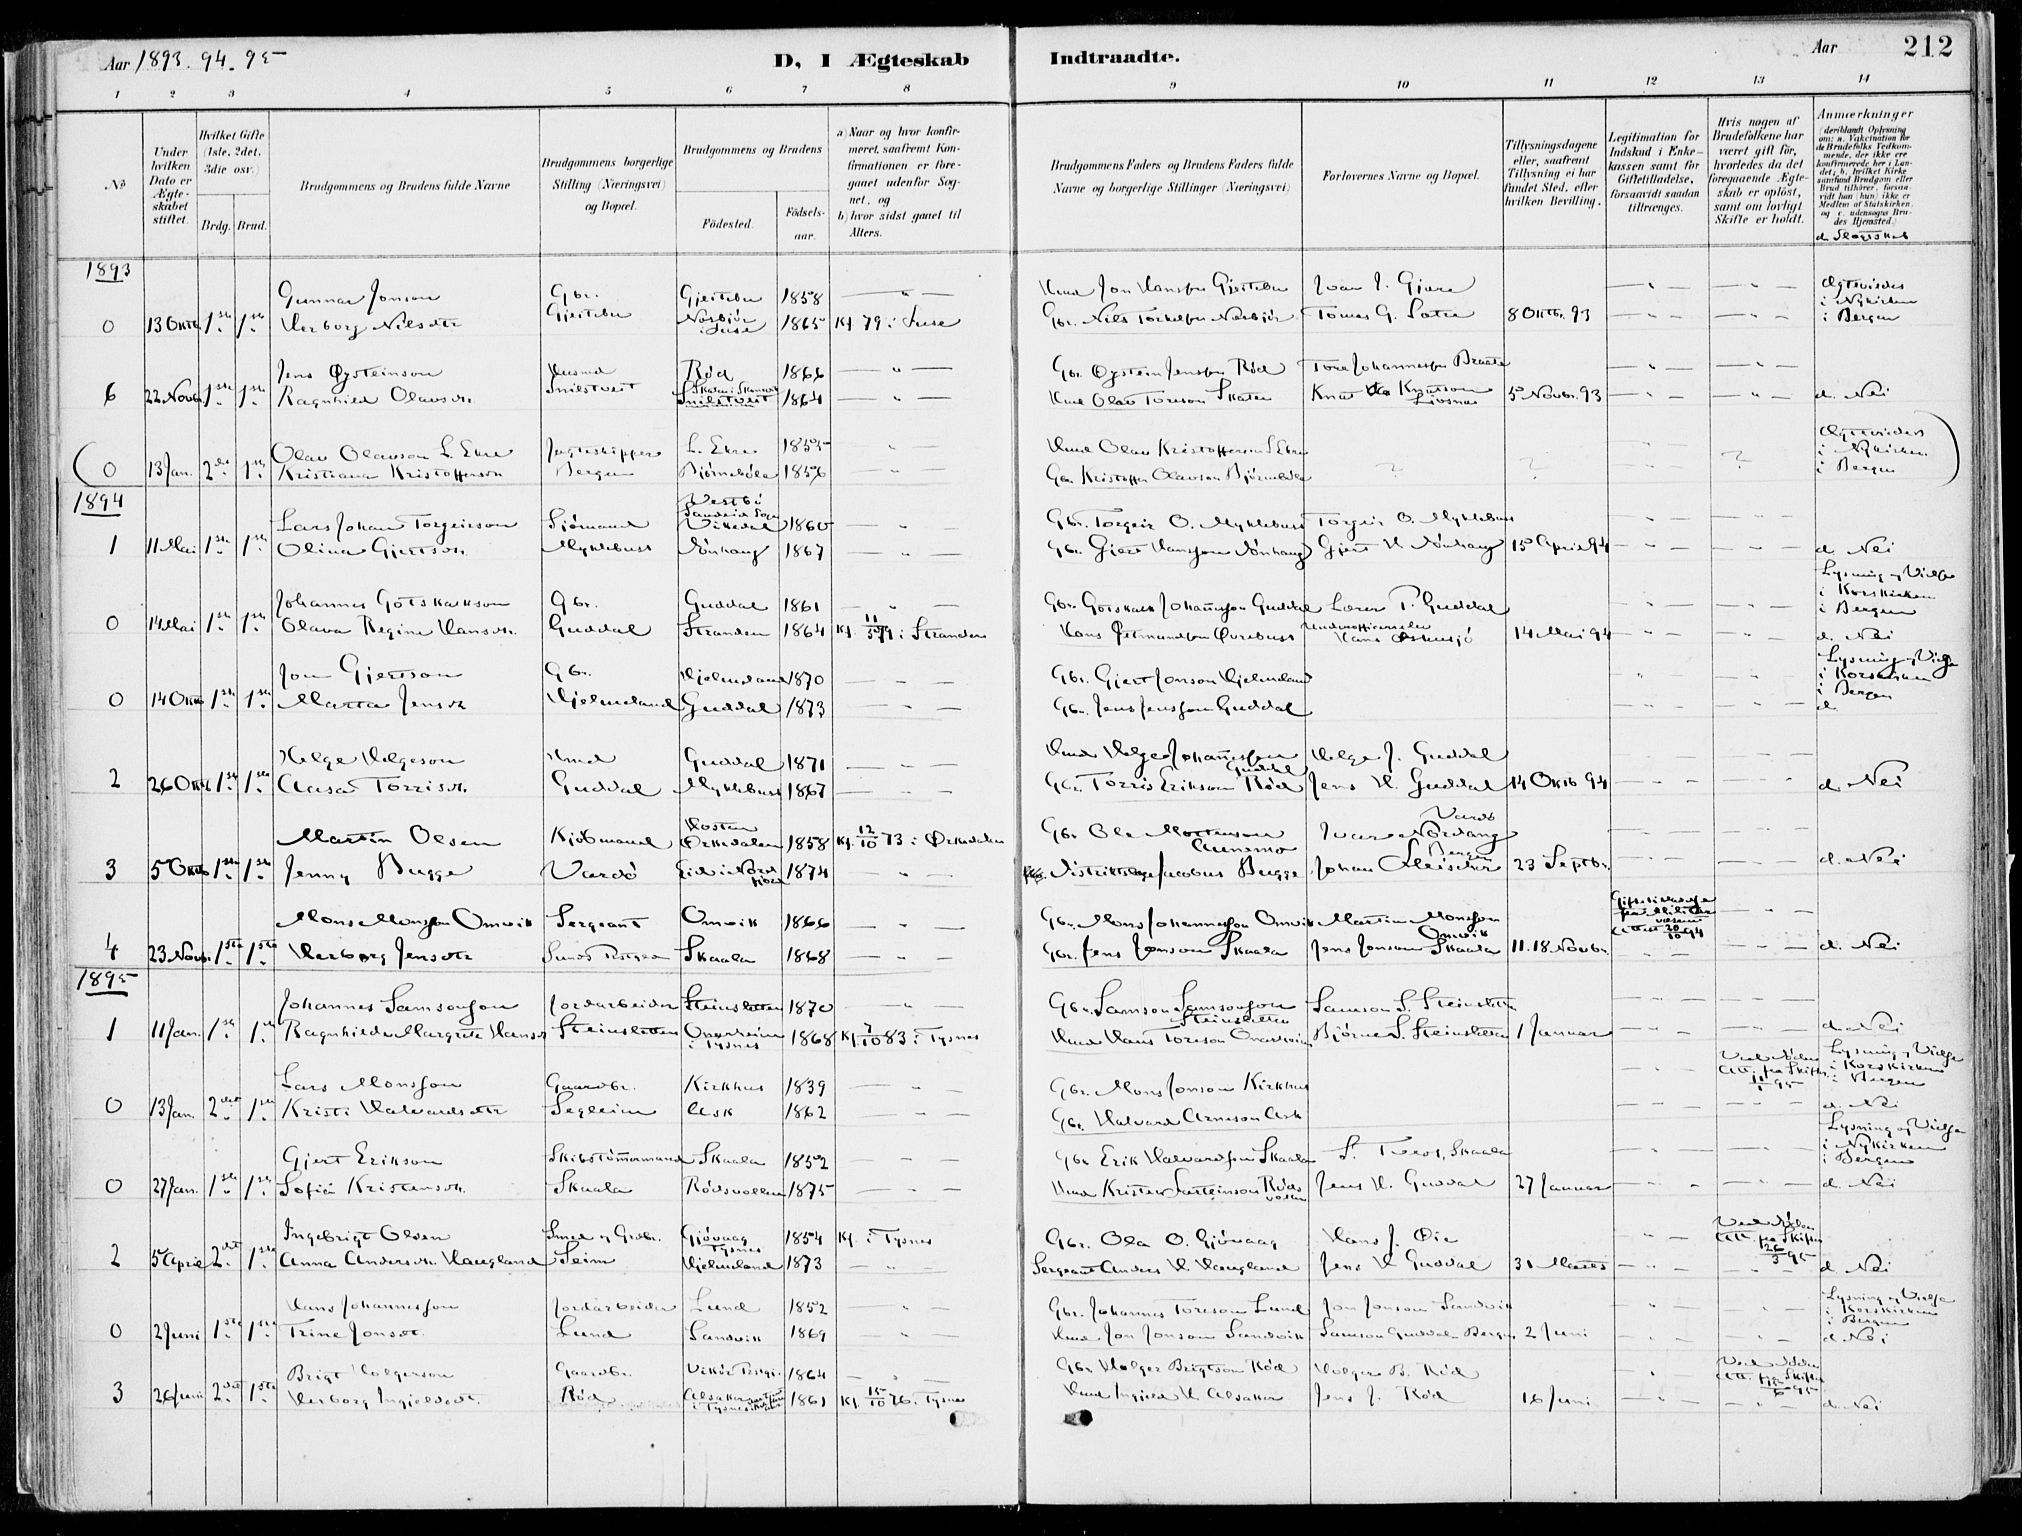 Aar 1893. 94. 95
D, I Ægteskab Indtraadte.
Aar 212
1 2 3 4 5 6 7 8 9 10 11 12 13 14
No
Under hvilken Dato er Ægteskabet stiftet.
Hvilket Gifte (1ste, 2det, 3die osv.)
Brdg. Brud.
Brudgommens og Brudens fulde Navne
Brudgommens borgerlige Stilling (Næringsvei) og Bopæl.
Brudgommens og Brudens
Fødested. Fødselsaar.
a) Naar og hvor konfirmeret, saafremt Konfirmationen er foregaaet udenfor Sognet, og
b) hvor sidst gaaet til Alters.
Brudgommens Faders og Brudens Faders fulde Navne og borgerlige Stillinger (Næringsvei)
Forlovernes Navne og Bopæl.
Tillysningsdagene eller, saafremt Tillysning ei har fundet Sted, efter hvilken Bevilling.
Legitimation for Indskud i Enkekassen samt for Giftetilladelse, forsaavidt saadan tiltrænges.
Hvis nogen af Brudefolkene har været gift før, hvorledes da det foregaaende Ægteskab er opløst, samt om lovligt Skifte er holdt.
Anmerkninger
(deriblandt Oplysning om: a. Vakcination for de Brudefolks Vedkommende, der ikke ere konfirmerede her i Landet; b. hvilket Kirkesamfund Brudgom eller Brud tilhører, forsaavidt han (hun) ikke er Medlem af Statskirken, og c. udensogns Brudes Hjemsted.)
d. Slægtskab
1893
Gunnar Jonson Gbr. Gjertebu 1858 — " — Hmd Jon Hansson Gjertebu Ivar J. Gjøre Ægtevides
0 13 Oktb. 1ste 1ste Herborg Nilsdtr Gjertebu Nøsbjør Fuse 1865 Kf 79 i Fuse Gbr. Nils Torkelson Nøsbjør Tomas G. Sæter 8 Oktbr. 93 i Nykirken i Bergen
Jens Øysteinson Husmd Rød 1866 — " — Gbr. Øystein Jensson Rød Tore Johannesson Braate
6 22 Novbr. 1ste 1ste Ragnhild Olavsdtr. Snilstveit Skaten i Skonevik Snilstveit 1864 — " — Hmd Olav Toreson Skaten Knut Knutson Livsnes 5 Novbr. 93 d. Nei
Olav Olavson L. Ekre Jagteskipper L. Ekre 1855 — " — Hmd Olav Kristofferson L. Ekre Ægtevides
(0 13 Jan. 2de 1ste Kristiana Kristoffersdtr Bergen Bjørnebøle 1856 " Gbr. Kristoffer Olavson Bjørnebøle ? ? ? i Nykirken i Bergen)
1894
Lars Johan Torgeirson Sjømand Vestbø Sandeid Sogn Vikedal 1860 — " — Gbr. Torgeir O. Myklebust Torgeir O. Myklebust
1 11 Mai 1ste 1ste Olina Gjertsdtr Myklebust Nønhaug 1867 — " — Gbr. Gjert Hansson Nønhaug Gjert H. Nønhaug 15 April 94 d. Nei
Johannes Gotskalkson Gbr. Guddal 1861 — " — Gbr. Gotskalk Johannesson Guddal Lærer P. Guddal Lysning og Vielse i Korskirken i Bergen
0 14 Mai 1ste 1ste Olava Regine Hansdtr. Guddal Stranden 1864 Kf. 11/5 79 i Stranden Hans Øvrebust Underofficerselev Hans 14 Mai 94 d. Nei
Jon Gjertson Gbr. Hjelmeland 1870 — " — Gbr. Gjert Jonson Hjelmeland Lysning og Vielse i Korskirken i Bergen
0 14 Oktb 1ste 1ste Marta Jensdtr Hjelmeland Guddal 1873 — " — Gbr. Jens Jensson Guddal d.
Helge Helgeson Hmd Guddal 1871 — — Hmd Helge Johannesson Guddal Helge J. Guddal
2 26 Oktb. 1ste 1ste Aasa Torrisdtr. Guddal Myklebust 1867 — " — Gbr. Torris Erikson Rød Jens H. Guddal 14 Oktb 94 d. Nei
Martin Olsen Kjøbmand Hosten Ørkedalen 1858 Kf. 12/10 73 i Ørkedalen Gbr. Ole Mortenson Aunemo Ivar Nordang Vardø
3 5 Oktb 1ste 1ste Jenny Bugge Vardø Eid i Nordfjord 1874 — " — Distriktslæge Jacobus Bugge Johan Fleischer Bergen 23 Septbr. d. Nei
Mons Monsson Omvik Sergeant Omvik 1866 — " — Gbr. Mons Johannesson Omvik Martin Monsson Omvik Giftetilladelse fra Militærvæsenet Attest 20/10 94
4 23 Novbr. 1ste 1ste Herborg Jensdtr Sunds Prstgjeld Skaala 1868 — " — Gbr. Jens Jonson Skaala Jens Jonson Skaala 11. 18 Novbr. d. Nei
1895
Johannes Samsonson Jordarbeider Steinsletten 1870 — " — Gbr. Samson Samsonson Steinsletten Samson S. Steinsletten
1 11 Jan. 1ste 1ste Ragnhilda Margrete Hansdtr Steinsletten Onarheim i Tysnes 1868 Kf. 7/10 83 i Tysnes Hmd Hans Toreson Onarheim Bjørne S. Steinsletten 1 Januar d. Nei
Lars Monsson Gaardbr. Kirkhus 1839 — " — Gbr. Mons Jonson Kirkhus Ved Døden Att. fra Skifter. 11/1 95 Lysning og Vielse i Korskirken i Bergen
0 13 Jan. 2det 1ste Kristi Halvardsdtr Segleim Ask 1862 — " — Gbr. Halvard Arneson Ask d. Nei
Gjert Erikson Skibstømmermand Skaala 1852 — — Gbr Erik Halvardson Skaala S. Tveit, Skaala Lysning og Vielse i Nykirken i Bergen
0 27 Jan. 1ste 1ste Sofia Kristensdtr. Skaala Rødsvollen 1875 — " — Hmd Kristen Salteinson Rødsvollen Jens H. Guddal 27 Januar d. Nei
Ingebrigt Olsen Smed og Grdbr. Gjøvaag Tysnes 1854 Kf. i Tysnes Gbr. Ola O. Gjøvaag Hans J. Øie Ved Døden Att. fra Skifter 26/3 95
2 5 April 2det 1ste Anna Andersdtr Haugland Seim Hjelmeland 1873 — " — Sergeant Anders H. Haugland Jens H Guddal 31 Marts d. Nei
Hans Johannesson Jordarbeider Lund 1852 — " — Gbr. Johannes Toreson Lund Jon Jonson Sandvik Lysning og Vielse i Korskirken i Bergen
0 2 Juni 1ste 1ste Trine Jonsdt. Lund Sandvik 1869 — " — Hmd Jon Jonson Sandvik Samson Guddal Bergen 2 Juni d. Nei
Brigt Holgerson Gaardbr. Vikør Prstgj. 1864 — " — Gbr Holger Brigtson Rød Holger B. Rød Ved Døden Att. fra Skifter 95
3 26 Juni 2det 1ste Herborg Ingjeldsdt. Rød Alsaker i Tysnes 1861 Kf. 15/10 76 i Tysnes Hmd Ingjeld H Alsaker Jens J. Rød 16 Juni d. Nei